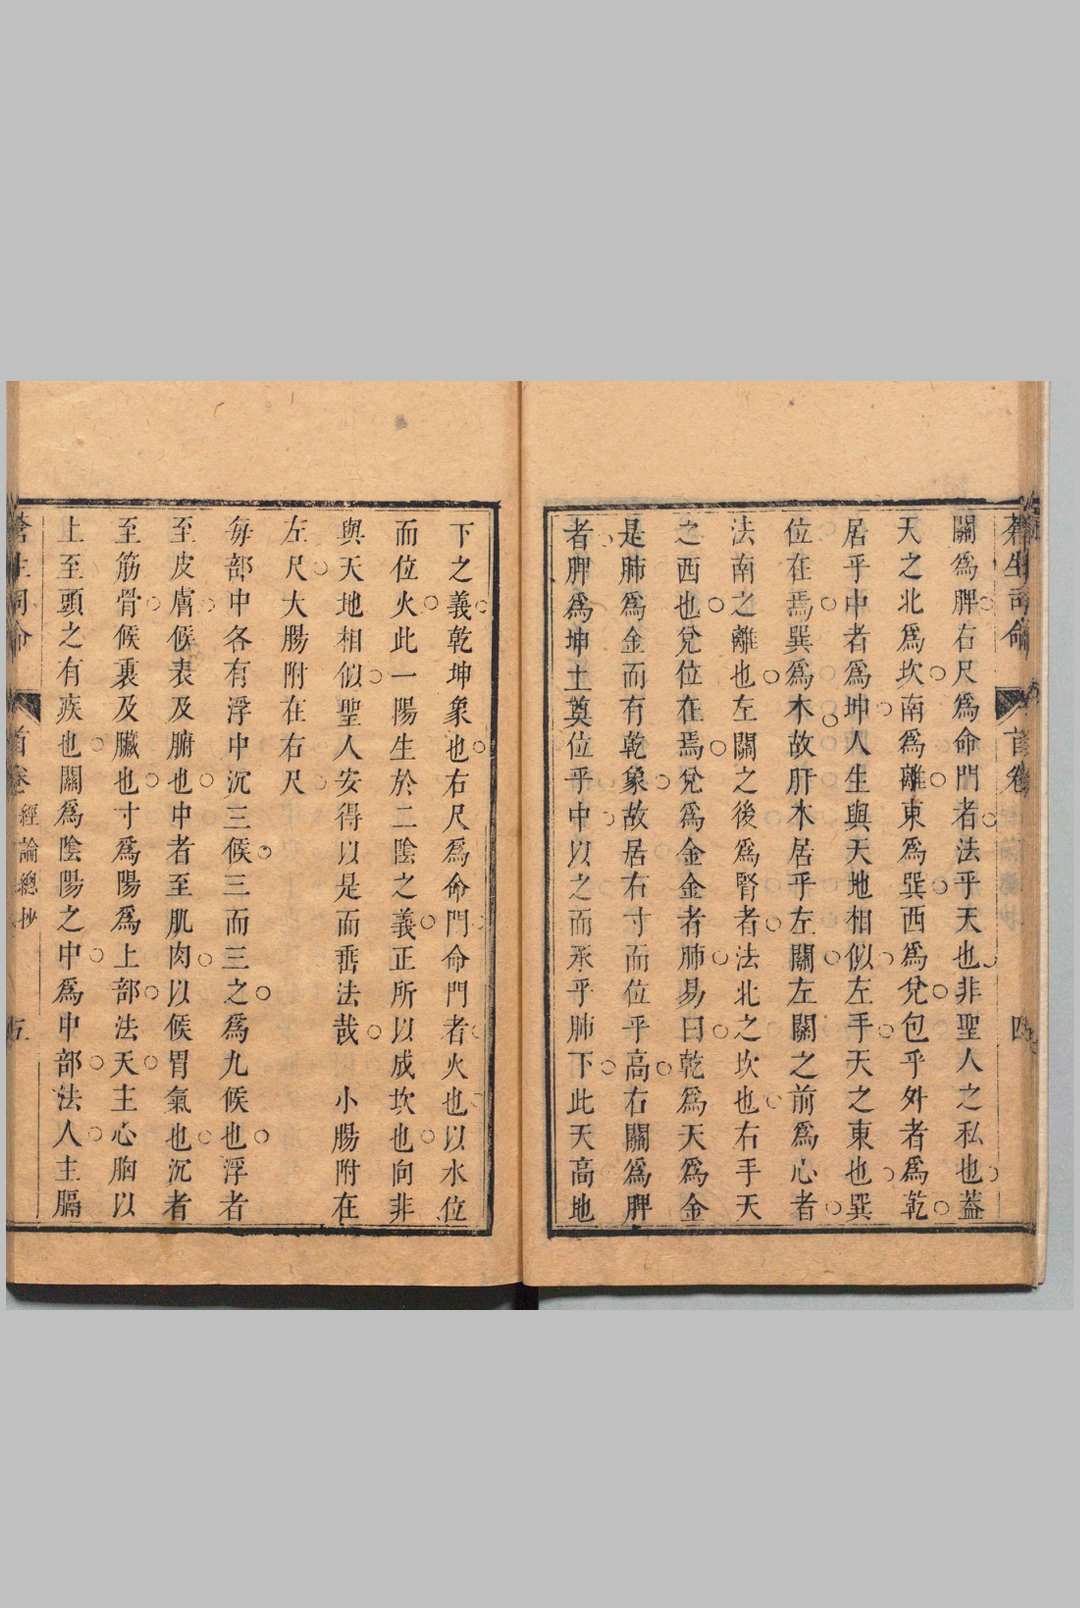 蒼生司命 首卷 四
關爲脾右尺爲命門者法乎天也非聖人之私也蓋
天之北爲坎南爲離東爲巽西爲兌包乎外者爲乾
居乎中者爲坤人生與天地相似左手天之東也巽
位在焉巽爲木故肝木居乎左關左關之前爲心者
法南之離也左關之後爲腎者法北之坎也右手天
之西也兌位在焉兌爲金金者肺易曰乾爲天爲金
是肺爲金而有乾象故居右寸而位乎高右關爲脾
者脾爲坤土奠位乎中以之而承乎肺下此天高地
下之義乾坤象也右尺爲命門命門者火也以水位
而位火此一陽生於二陰之義正所以成坎也向非
與天地相似聖人安得以是而垂法哉 小腸附在
左尺大腸附在右尺
每部中各有浮中沉三候三而三之爲九候也浮者
至皮膚候表及腑也中者至肌肉以候胃氣也沉者
至筋骨候裏及臟也寸爲陽爲上部法天主心胸以
上至頭之有疾也關爲陰陽之中爲中部法人主膈
蒼生司命 首卷 經論總抄 五